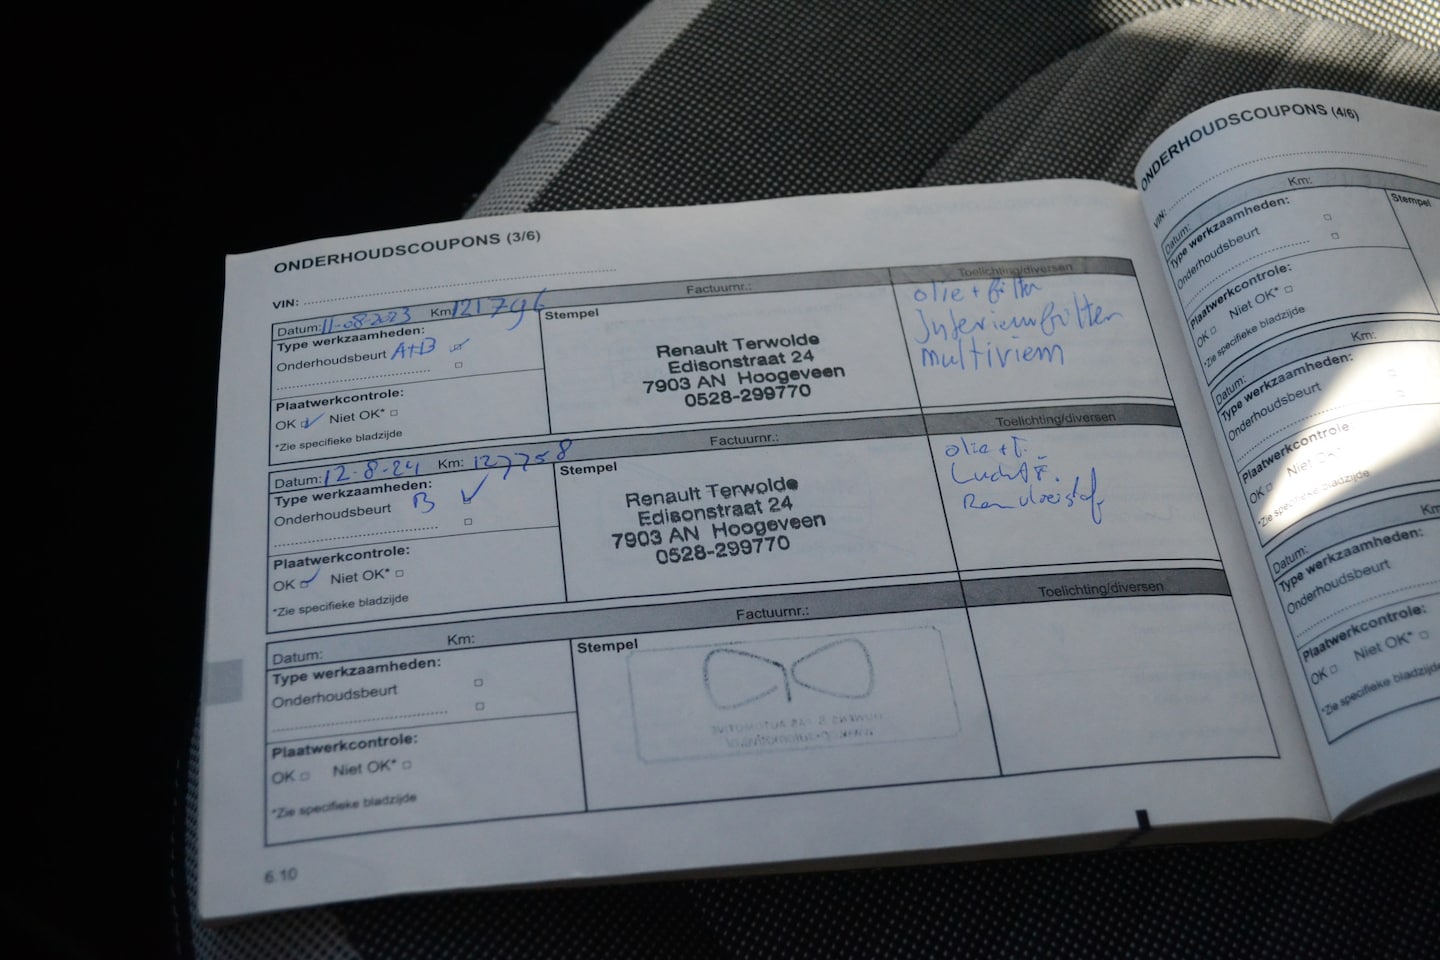 ONDERHOUDSCOUPONS (3/6)
VIN:
Datum: 11-08-2023 Km 121796
Factuurnr.:
Toelichting/diversen
Type werkzaamheden:
Onderhoudsbeurt A+B
Plaatwerkcontrole:
OK Niet OK*
*Zie specifieke bladzijde
Stempel
Renault Terwolde
Edisonstraat 24
7903 AN Hoogeveen
0528-299770
olie + filter
Interieurfilter
multiriem
Datum: 12-8-24 Km: 127758
Factuurnr.:
Toelichting/diversen
Type werkzaamheden:
Onderhoudsbeurt B
Plaatwerkcontrole:
OK Niet OK*
*Zie specifieke bladzijde
Stempel
Renault Terwolde
Edisonstraat 24
7903 AN Hoogeveen
0528-299770
olie + F.
Lucht F.
Remvloeistof
Datum: Km:
Factuurnr.:
Toelichting/diversen
Type werkzaamheden:
Onderhoudsbeurt
Plaatwerkcontrole:
OK Niet OK*
*Zie specifieke bladzijde
Stempel
6.10
ONDERHOUDSCOUPONS (4/6)
VIN:
Datum: Km:
Type werkzaamheden:
Onderhoudsbeurt
Plaatwerkcontrole:
OK Niet OK*
*Zie specifieke bladzijde
Stempel
Datum: Km:
Type werkzaamheden:
Onderhoudsbeurt
Plaatwerkcontrole
OK Niet OK*
*Zie specifieke bladzijde
Datum: Km:
Type werkzaamheden:
Onderhoudsbeurt
Plaatwerkcontrole:
OK Niet OK*
*Zie specifieke bladzijde